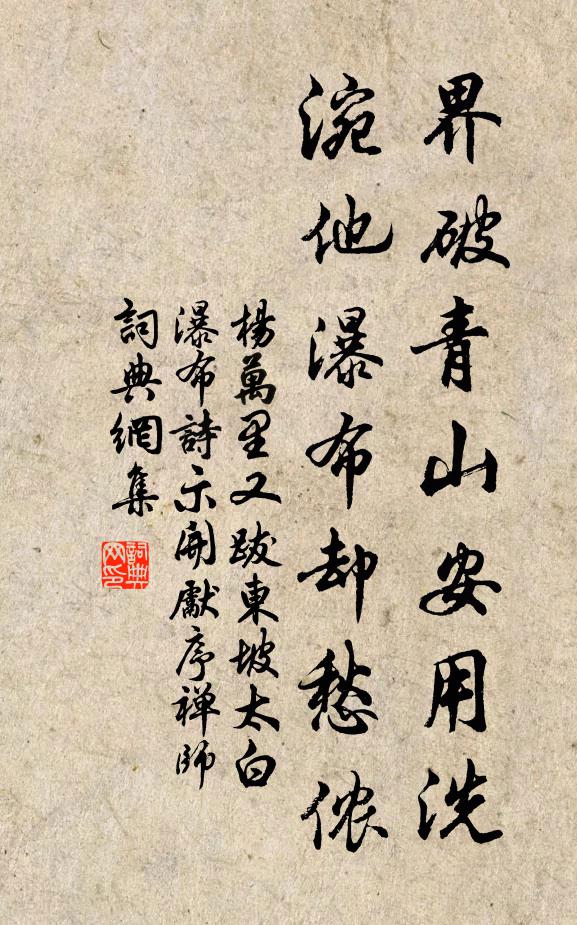 界破青山安用洗
涴他瀑布却愁侬
楊萬里又跋東坡太白
瀑布詩示開獻序禅師
詞典網集
詞典
网印